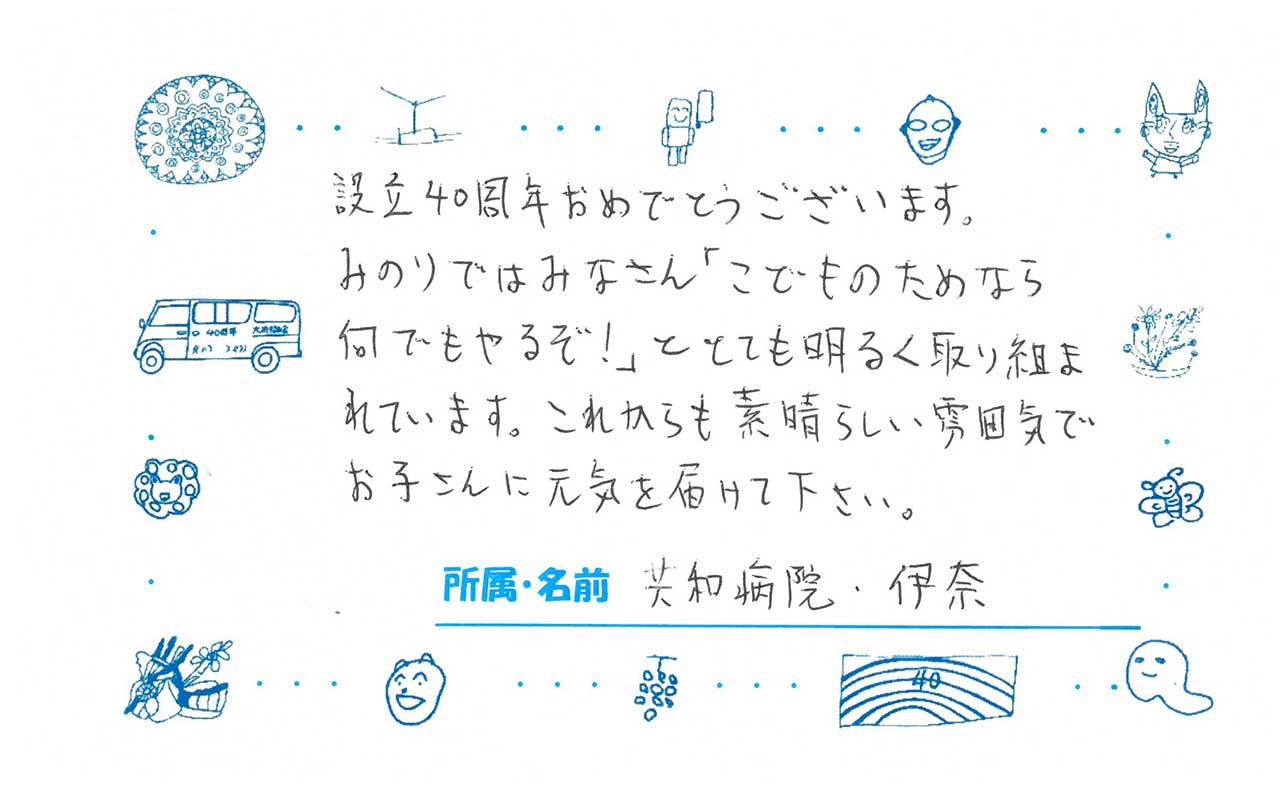 設立40周年おめでとうございます。
みのりではみなさん「こでものためなら
何でもやるぞ!」ととても明るく取り組ま
れています。これからも素晴らしい雰囲気で
お子さんに元気を届けて下さい。
所属・名前 共和病院・伊奈
40周年
40